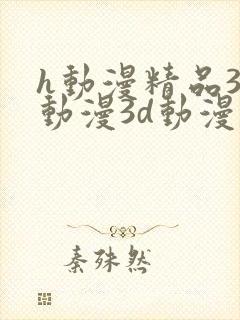 h動漫精品3
動漫3d動漫
秦殊然